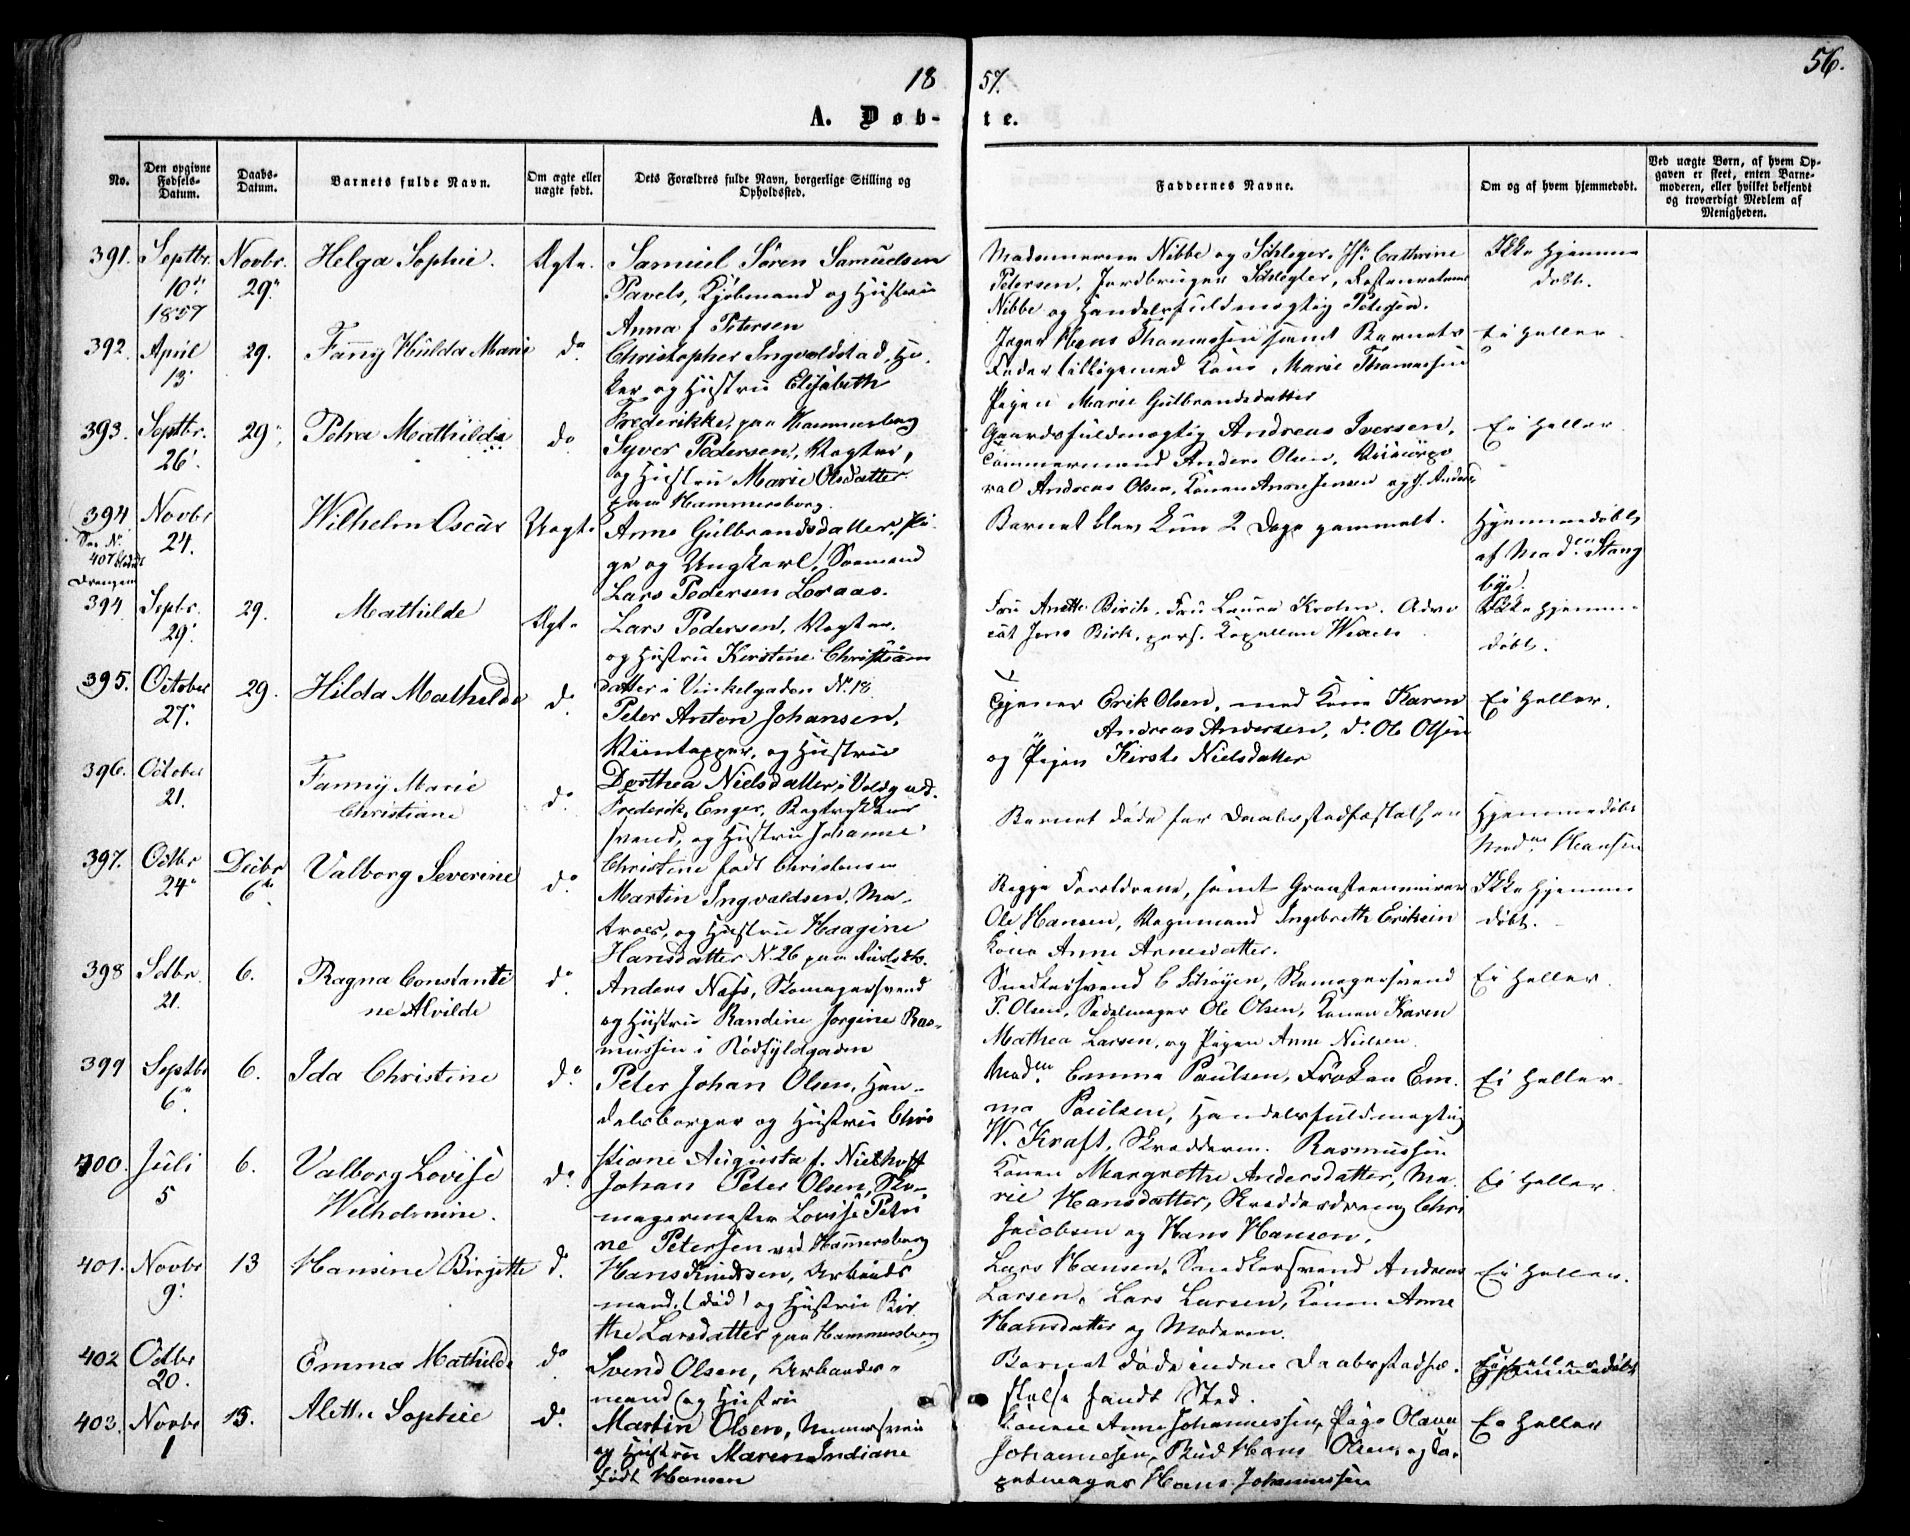 18 57.
56.
A. Døb- te.
No.
Den opgivne Fødsels-Datum.
Daabs-Datum.
Barnets fulde Navn.
Om ægte eller uægte født.
Dets Forældres fulde Navn, borgerlige Stilling og Opholdssted.
Faddernes Navne.
Om og af hvem hjemmedøbt.
Ved uægte Børn, af hvem Opgaven er skeet, enten Barnemoderen, eller hvilket bekjendt og troværdigt Medlem af Menigheden.
391. Septbr. 10' 1857
Novbr. 29"
Helga Sophie.
Ægte.
Samuel Søren Samuelsen
Pavels, Kjøbmand og Hustru
Anna f Petersen
Madamerne Nibbe og Schlegler, Jfr Cathrine
Petersen, Jordbruger Schlegler,
Nibbe og Handelsfuldmægtig Petersen.
Ikke hjemme
døbt.
392. April 13'
29.
Fanny Hulda Marie
do
Christopher Ingvoldstad, Hø-
ker og Hustru Elisabeth
Frederikke, paa Hammersborg
Jæger Hans Thomassen samt Barnets
Fader tilligemed Kone Marie Thomassen
Pigen Marie Gulbrandsdatter
Ei heller.
393. Septbr. 26'
29"
Petra Mathilde
do
Syver Pedersen, Vægter,
og Hustru Marie Olsdatter
paa Hammersborg.
Gaardsfuldmægtig Andreas Iversen,
Tømmermand Anders Olsen,
Andreas Olsen, Konen Anne Jensen og J. Anders
Ei heller
394 Novbr 24.
See No 407
Drengen
Wilhelm Oscar
Uægte
Anne Gulbrandsdatter, Pi-
ge og Ungkarl, Sømand
Lars Pedersen Loraas.
Barnet blev kun 2 Dage gammelt.
Hjemmedøbt
af Madm Stang
bye.
394. Septr. 29'
29.
Mathilde
Ægte
Lars Pedersen, Vægter,
og Hustru Kirstine Christians
datter i Vinkelgaden No 18
Fru Anette Birch, Fru Laura Krohn, Advo
cat Jens Birk, pers. Kapellan Wexels
Ikke hjemme-
døbt.
395. October 27'
29.
Hilda Mathilde
do
Peter Anton Johansen,
Viintapper, og Hustru
Dorthea Nielsdatter i Voldgad.
Tjener Erik Olsen, med Kone Karen
" Andreas Andersen, do Ole Olsen
og Pigen Kirste Nielsdatter
Ei heller.
396. October 21.
Fanny Marie
Christiane
do
Frederik Enger, Bogtrykker
svend, og Hustru Johanne
Christine født Christensen
Barnet døde før Daabsstadfæstelsen
Hjemmedøbt
Madme Hansen
397. Octbr 24"
Decbr 6te
Valborg Severine
do
Martin Ingvaldsen, Ma-
tros, og Hustru Haagine
Hansdatter No 26 paa Rudsøk.
Begge Forældrene, samt Graasteensmurer
Ole Hansen, Vognmand Ingebreth Eriksen
Kone Anne Arnesdatter.
Ikke hjemme
døbt.
398 Octbr. 21.
6.
Ragna Constanti
ne Alvilde
do
Anders Næss, Skomagersvend
og Hustru Randine Jorgine Ras-
mussen i Rødfyldgaden
Snedkersvend C Schøyen, Skomagersvend
P. Olsen, Sadelmager Ole Olsen, Konen Karen
Mathea Larsen, og Pigen Anne Nielsen.
Ei heller.
399 Septbr 6"
6.
Ida Christine
do
Peter Johan Olsen, Han-
delsborger og Hustru Chri
stiane Augusta f. Nielhoff
Madm Emma Paulsen, Frøken Em-
ma Paulsen, Handelsfuldmægtig
W. Kraft, Skrædderen. Rasmussen
Ei heller.
400. Juli 5
6.
Valborg Lovise
Wilhelmine.
do
Johan Peter Olsen, Sko-
magermester Lovise Petri
ne Petersen ved Hammersborg
Konen Margrethe Andersdatter, Ma-
rie Hansdatter, Skrædderdreng Chri
Jacobsen og Hans Hansen.
Ei heller.
401. Novbr 9'
13
Hansine Birgitte
do
Hans Knudsen, Arbeids
mand, (død) og Hustru Bir
the Larsdatter paa Hammersborg
Lars Hansen, Snedkersvend Andreas
Larsen, Lars Larsen, Konen Anne
Hansdatter og Moderen.
Ei heller.
402 Octbr 20.
Emma Mathilde
do
Svend Olsen, Arbeids-
mand (og Hustru
Barnet døde inden Daabsstadfæ-
stelse fandt Sted.
Ei heller
Hjemmedøbt
403. Novbr 1
13.
Alette Sophie
do
Martin Olsen, Murersven
og Hustru Maren Indiane
født Hansen
Konen Anne Johannessen, Pige Olava
Johannesen, Bud Hans Olsen, og Ta-
petmager Hans Johannessen
Ei heller